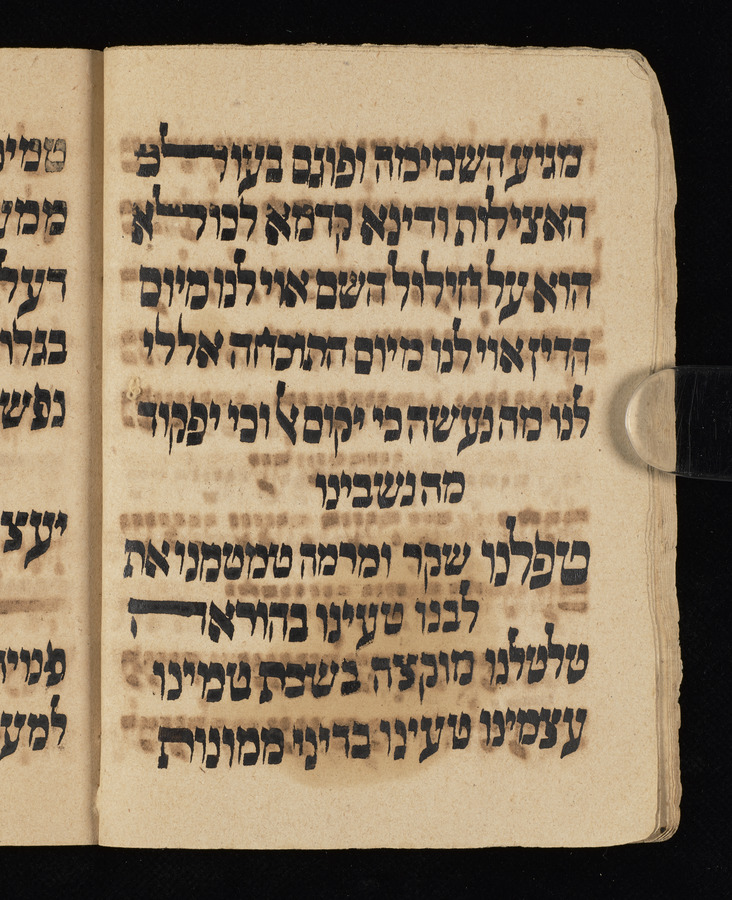 מגיע השמימה ופוגם בעולם
האצילות ודינא קדמא לכולא
הוא על חילול השם אוי לנו מיום
הדין אוי לנו מיום התוכחה אללי
לנו מה נעשה כי יקום אל וכי יפקוד
מה נשבינו
טפלנו שקר ומרמה טמטמנו את
לבנו טעינו בהוראה
טלטלנו מוקצה בשבת טמינו
עצמינו טעינו בדיני ממונות